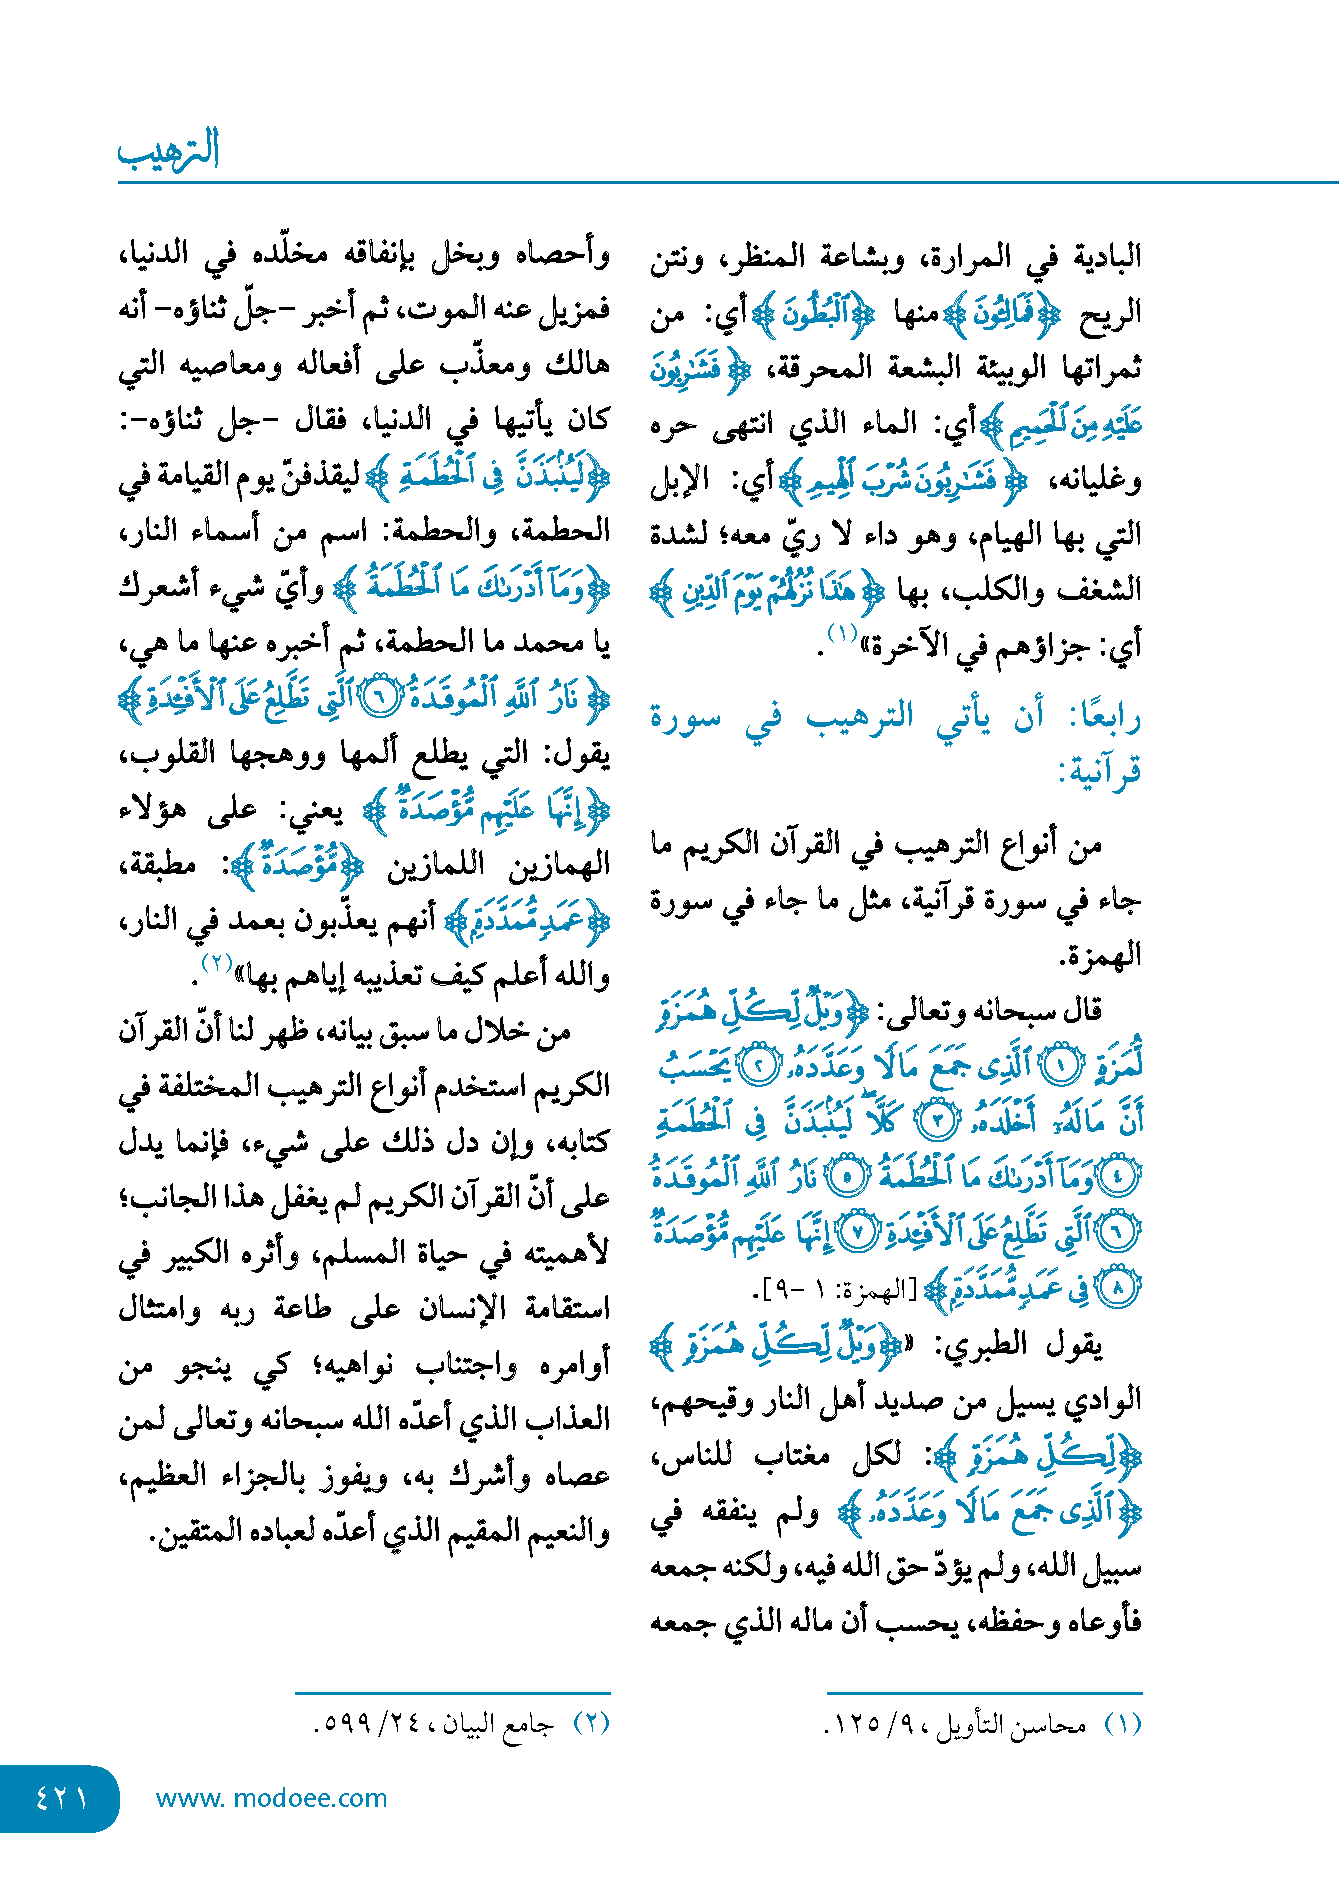 الترهيب
البادية في المرارة، وبشاعة المنظر، ونتن
الريح ﴿فَمَالِـُٔونَ﴾ منها ﴿ٱلۡبُطُونَ﴾ أي: من
ثمراتها الوبيئة البشعة المحرقة، ﴿فَشَٰرِبُونَ
عَلَيۡهِ مِنَ ٱلۡحَمِيمِ﴾ أي: الماء الذي انتهى حره
وغليانه، ﴿فَشَٰرِبُونَ شُرۡبَ ٱلۡهِيمِ﴾ أي: الإبل
التي بها الهيام، وهو داء لا ريّ معه؛ لشدة
الشغف والكلب، بها ﴿هَٰذَا نُزُلُهُمۡ يَوۡمَ ٱلدِّينِ﴾
أي: جزاؤهم في الآخرة»(١).
رابعًا: أن يأتي الترهيب في سورة
قرآنية:
من أنواع الترهيب في القرآن الكريم ما
جاء في سورة قرآنية، مثل ما جاء في سورة
الهمزة.
قال سبحانه وتعالى: ﴿وَيۡلٞ لِّكُلِّ هُمَزَةٖ
لُّمَزَةٍ ١ ٱلَّذِي جَمَعَ مَالٗا وَعَدَّدَهُۥ ٢ يَحۡسَبُ
أَنَّ مَالَهُۥٓ أَخۡلَدَهُۥ ٣ كَلَّاۖ لَيُنۢبَذَنَّ فِي ٱلۡحُطَمَةِ
٤ وَمَآ أَدۡرَىٰكَ مَا ٱلۡحُطَمَةُ ٥ نَارُ ٱللَّهِ ٱلۡمُوقَدَةُ
٦ ٱلَّتِي تَطَّلِعُ عَلَى ٱلۡأَفۡـِٔدَةِ ٧ إِنَّهَا عَلَيۡهِم مُّؤۡصَدَةٞ
٨ فِي عَمَدٖ مُّمَدَّدَةِۭ﴾ [الهمزة: ١ -٩].
يقول الطبري: «﴿وَيۡلٞ لِّكُلِّ هُمَزَةٖ﴾
الوادي يسيل من صديد أهل النار وقيحهم،
﴿لِّكُلِّ هُمَزَةٖ﴾: لكل مغتاب للناس،
﴿ٱلَّذِي جَمَعَ مَالٗا وَعَدَّدَهُۥ﴾ ولم ينفقه في
سبيل الله، ولم يؤدّ حق الله فيه، ولكنه جمعه
فأوعاه وحفظه، يحسب أن ماله الذي جمعه
(١) محاسن التأويل ، ٩/ ١٢٥.
وأحصاه وبخل بإنفاقه مخلّده في الدنيا،
فمزيل عنه الموت، ثم أخبر -جلّ ثناؤه- أنه
هالك ومعذّب على أفعاله ومعاصيه التي
كان يأتيها في الدنيا، فقال -جل ثناؤه-:
﴿لَيُنۢبَذَنَّ فِي ٱلۡحُطَمَةِ﴾ ليقذفنّ يوم القيامة في
الحطمة، والحطمة: اسم من أسماء النار،
﴿وَمَآ أَدۡرَىٰكَ مَا ٱلۡحُطَمَةُ﴾ وأيّ شيء أشعرك
يا محمد ما الحطمة، ثم أخبره عنها ما هي،
﴿نَارُ ٱللَّهِ ٱلۡمُوقَدَةُ ٦ ٱلَّتِي تَطَّلِعُ عَلَى ٱلۡأَفۡـِٔدَةِ﴾
يقول: التي يطلع ألمها ووهجها القلوب،
﴿إِنَّهَا عَلَيۡهِم مُّؤۡصَدَةٞ﴾ يعني: على هؤلاء
الهمازين اللمازين ﴿مُّؤۡصَدَةٞ﴾: مطبقة،
﴿عَمَدٖ مُّمَدَّدَةِۭ﴾ أنهم يعذّبون بعمد في النار،
والله أعلم كيف تعذيبه إياهم بها»(٢).
من خلال ما سبق بيانه، ظهر لنا أنّ القرآن
الكريم استخدم أنواع الترهيب المختلفة في
كتابه، وإن دل ذلك على شيء، فإنما يدل
على أنّ القرآن الكريم لم يغفل هذا الجانب؛
لأهميته في حياة المسلم، وأثره الكبير في
استقامة الإنسان على طاعة ربه وامتثال
أوامره واجتناب نواهيه؛ كي ينجو من
العذاب الذي أعدّه الله سبحانه وتعالى لمن
عصاه وأشرك به، ويفوز بالجزاء العظيم،
والنعيم المقيم الذي أعدّه لعباده المتقين.
(٢) جامع البيان ، ٢٤/ ٥٩٩.
www. modoee.com
٤٢١